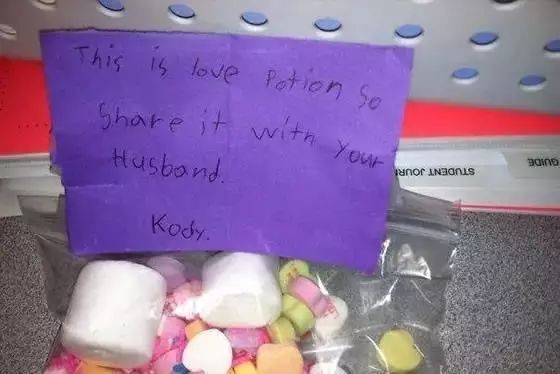 This is love Potion So
Share it with your
Husband.
Kody.
STUDENT JOUR
GUIDE